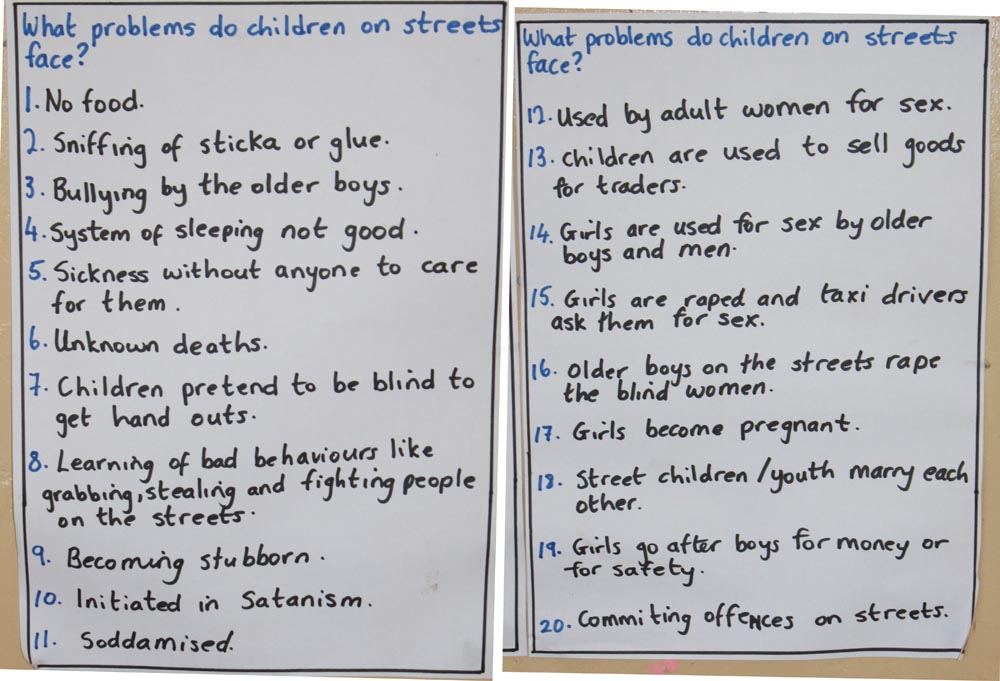 What problems do children on streets
face?
1. No food.
2. Sniffing of sticka or glue.
3. Bullying by the older boys.
4. System of sleeping not good.
5. Sickness without anyone to care
for them.
6. Unknown deaths.
7. Children pretend to be blind to
get hand outs.
8. Learning of bad behaviours like
grabbing, stealing and fighting people
on the streets.
9. Becoming stubborn.
10. Initiated in Satanism.
11. Soddamised.
What problems do children on streets
face?
12. Used by adult women for sex.
13. Children are used to sell goods
for traders.
14. Girls are used for sex by older
boys and men.
15. Girls are raped and taxi drivers
ask them for sex.
16. Older boys on the streets rape
the blind women.
17. Girls become pregnant.
18. Street children/youth marry each
other.
19. Girls go after boys for money or
for safety.
20. Commiting offences on streets.